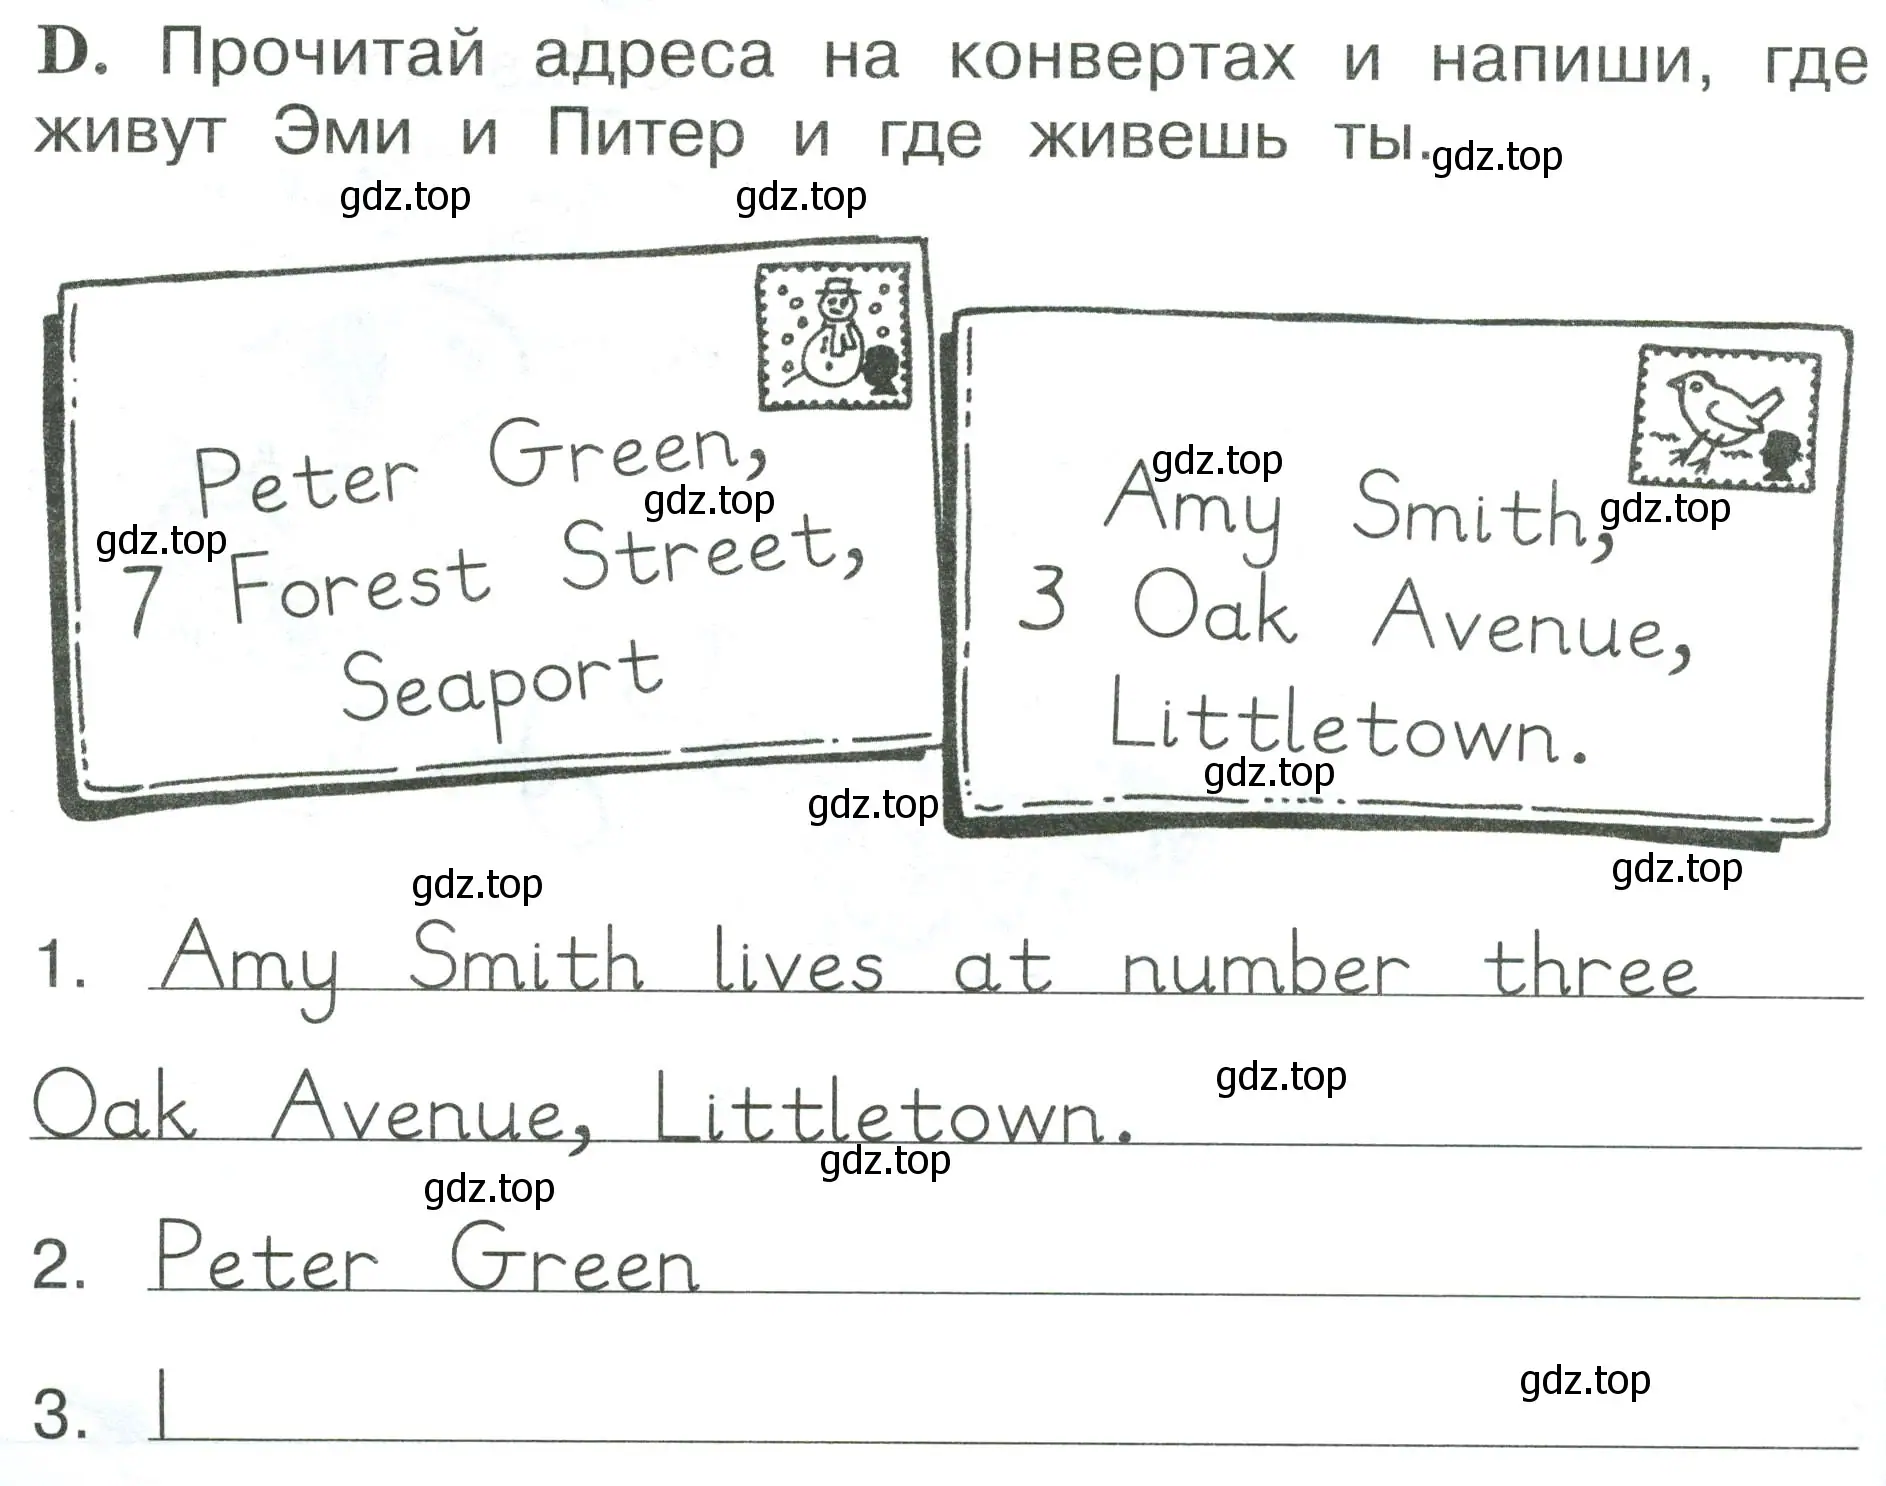 D. Прочитай адреса на конвертах и напиши, где
живут Эми и Питер и где живешь ты.
gdz.top
gdz.top
gdz.top
Peter Green,
gdz.top
gdz.top
7 Forest Street,
Seaport
gdz.top
Amy Smith,
gdz.top
3 Oak Avenue,
Littletown.
gdz.top
gdz.top
gdz.top
gdz.top
1. Amy Smith lives at number three
Oak Avenue, Littletown.
gdz.top
gdz.top
gdz.top
2. Peter Green
3. I
gdz.top